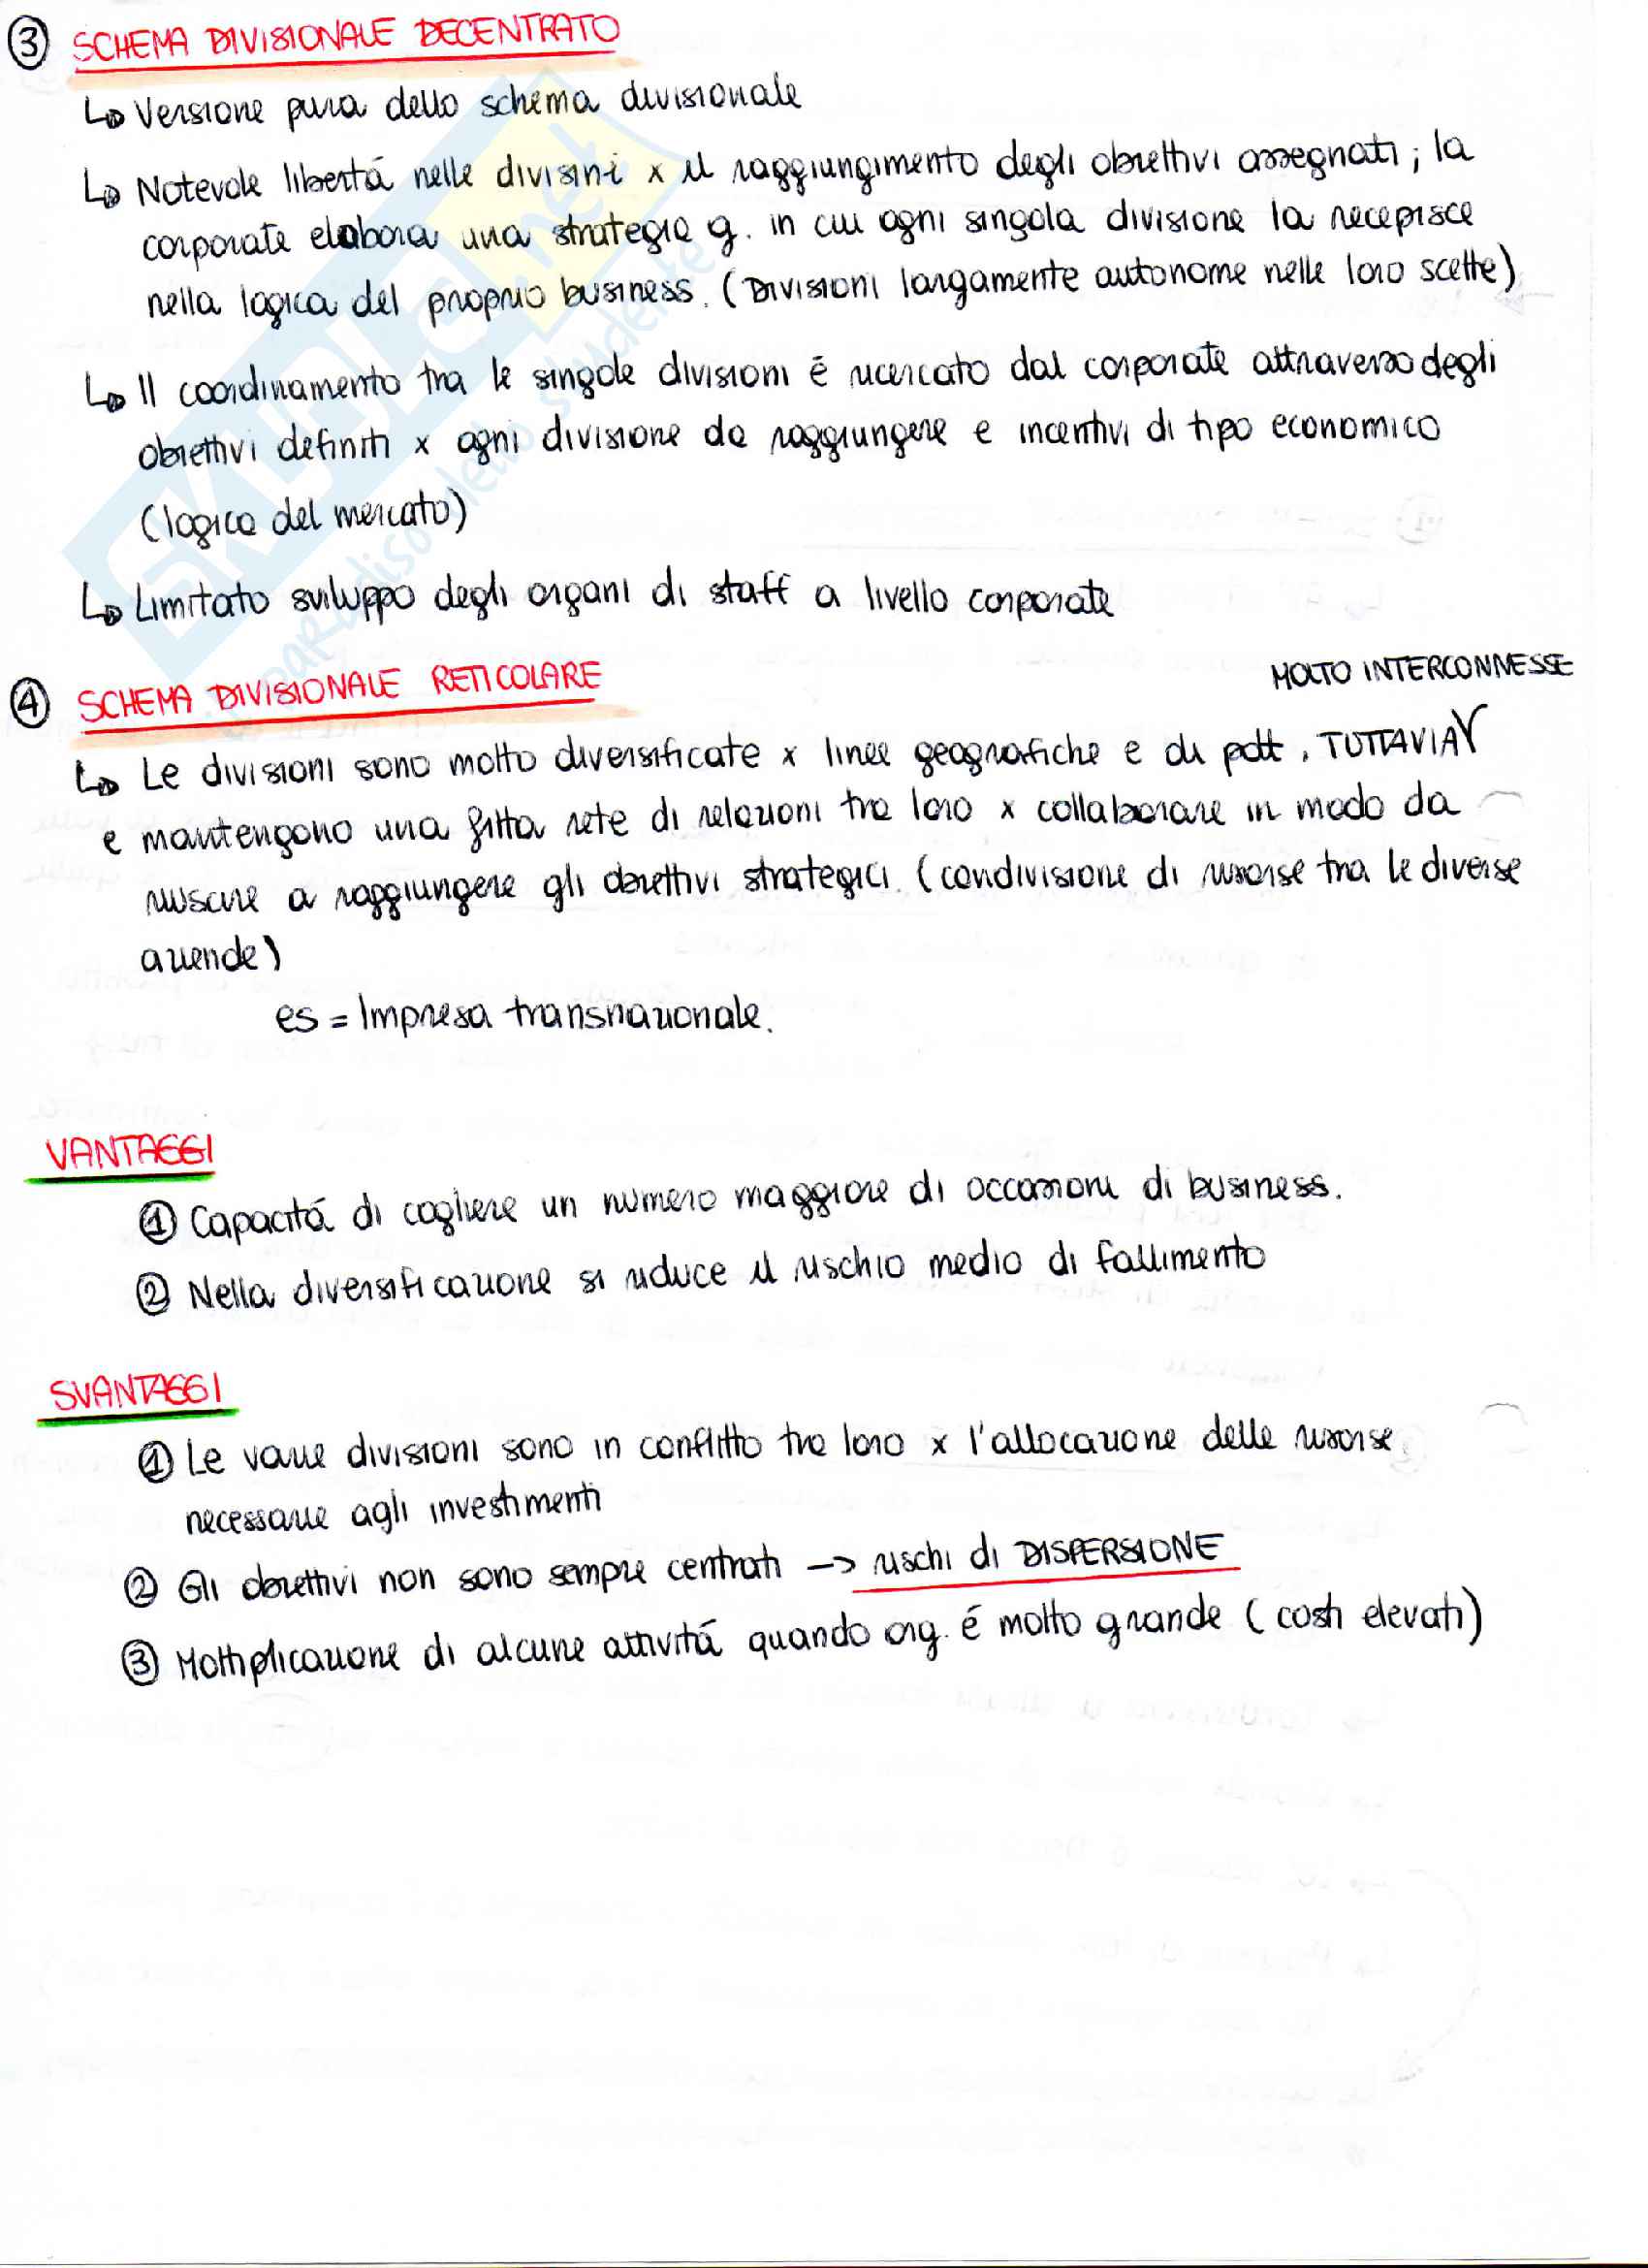 ③ SCHEMA DIVISIONALE DECENTRATO
↳ Versione pura dello schema divisionale
↳ Notevole libertá nelle divisini x il raggiungimento degli obiettivi assegnati; la
corporate elabora una strategia g. in cui ogni singola divisione la recepisce
nella logica del proprio business. (Divisioni largamente autonome nelle loro scelte)
↳ Il coordinamento tra le singole divisioni é ricercato dal corporate attraverso degli
obiettivi definiti x ogni divisione da raggiungere e incentivi di tipo economico
(logica del mercato)
↳ Limitato sviluppo degli organi di staff a livello corporate
④ SCHEMA DIVISIONALE RETICOLARE
MOLTO INTERCONNESSE
↳ Le divisioni sono molto diversificate x linee geografiche e di pdtt. TUTTAVIA
e mantengono una fitta rete di relazioni tra loro x collaborare in modo da
riuscire a raggiungere gli obiettivi strategici. (condivisione di risorse tra le diverse
aziende)
es = Impresa transnazionale.
VANTAGGI
① Capacitá di cogliere un numero maggiore di occasioni di business.
② Nella diversificazione si riduce il rischio medio di fallimento
SVANTAGGI
① Le varie divisioni sono in conflitto tra loro x l'allocazione delle risorse
necessarie agli investimenti
② Gli obiettivi non sono sempre centrati -> rischi di DISPERSIONE
③ Moltiplicazione di alcune attivitá quando org. é molto grande (costi elevati)
SKUOLA.net
il paradiso dello studente